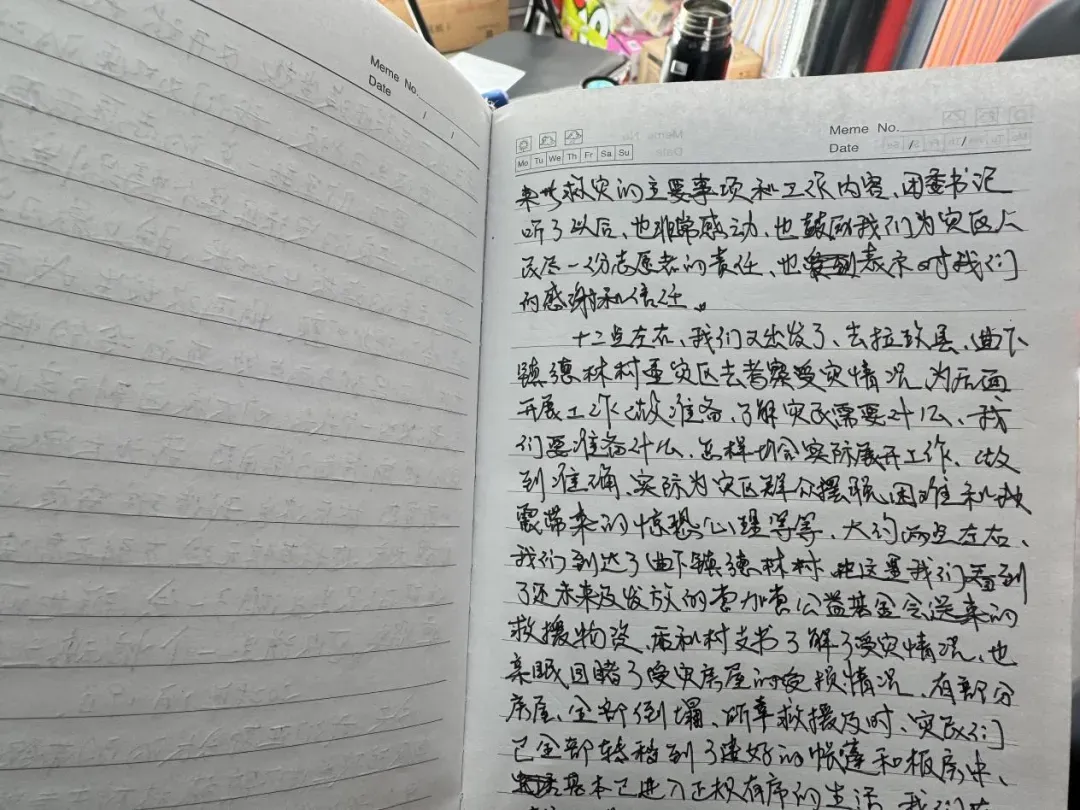 Meme No.
Date / /
Meme No.
Date / /
Mo Tu We Th Fr Sa Su
来此救灾的主要事项和工作内容、团委书记
听了以后、也非常感动、也鼓励我们为灾区人
民尽一份志愿者的责任、也表示对我们
的感谢和信任。
十二点左右、我们又出发了、去拉孜县、曲下
镇德林村重灾区去考察受灾情况、为后面
开展工作做准备、了解灾民需要什么、我
们要准备什么、怎样切合实际展开工作、做
到准确、实际为灾区群众摆脱困难和
震带来的惊恐心理等等、大约两点左右、
我们到达了曲下镇德林村、在这里我们看到
了还未来及发放的壹加壹公益基金会送来的
救援物资、后和村支书了解了受灾情况、也
亲眼目睹了受灾房屋的受损情况、有部分
房屋、全部倒塌、所幸救援及时、灾民们
已全部转移到了建好的帐篷和板房中、
基本已进入正规有序的生活、我们